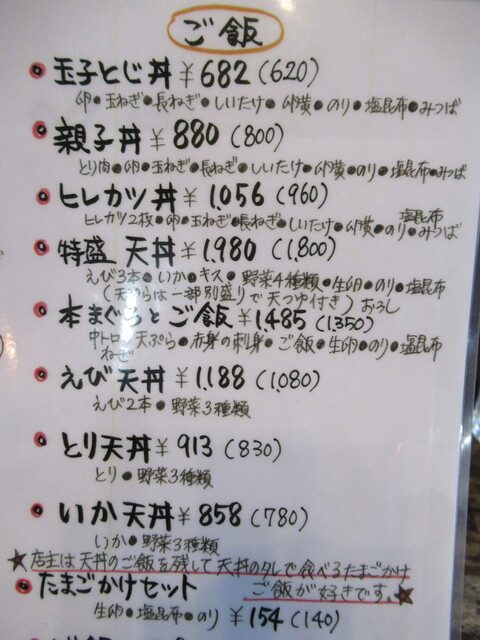 ご飯
玉子とじ丼 ¥682(620)
卵・玉ねぎ・長ねぎ・しいたけ・卵黄・のり・塩昆布・みつば
親子丼 ¥880(800)
とり肉・卵・玉ねぎ・長ねぎ・しいたけ・卵黄・のり・塩昆布・みつば
ヒレカツ丼 ¥1,056(960)
ヒレカツ2枚・卵・玉ねぎ・長ねぎ・しいたけ・卵黄・のり・塩昆布・みつば
特盛 天丼 ¥1,980(1,800)
えび3本・いか・キス・野菜4種類・生卵・のり・塩昆布
(天ぷらは一部別盛りで天つゆ付き)おろし
本まぐろとご飯 ¥1,485(1,350)
中トロ天ぷら・赤身の刺身・ご飯・生卵・のり・塩昆布
ねぎ
えび天丼 ¥1,188(1,080)
えび2本・野菜3種類
とり天丼 ¥913(830)
とり・野菜3種類
いか天丼 ¥858(780)
いか・野菜3種類
★店主は天丼のご飯を残して天丼のタレで食べるたまごかけ
ご飯が好きです。★
たまごかけセット
生卵・塩昆布・のり ¥154(140)